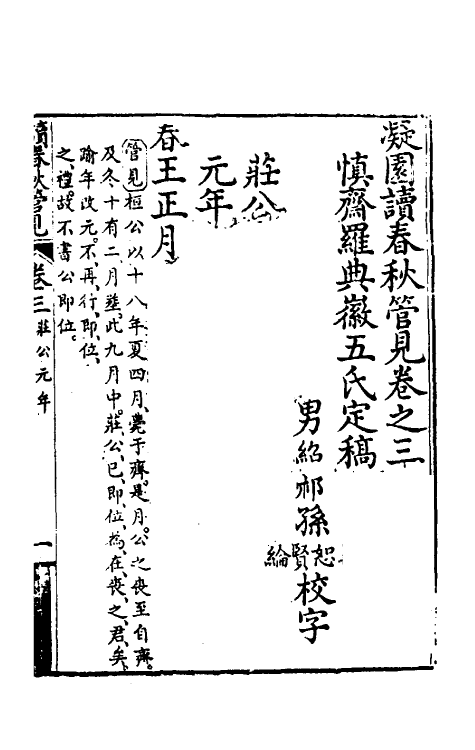 凝園讀春秋管見卷之三
慎齋羅典徽五氏定稿
男紹祁孫恕賢綸校字
莊公
元年
春王正月
管見桓公以十八年夏四月薨于齊是月公之喪至自齊
及冬十有二月葬此九月中莊公已即位為在喪之君矣
踰年改元不再行即位
之禮故不書公即位
讀春秋管見 卷三 莊公元年 一